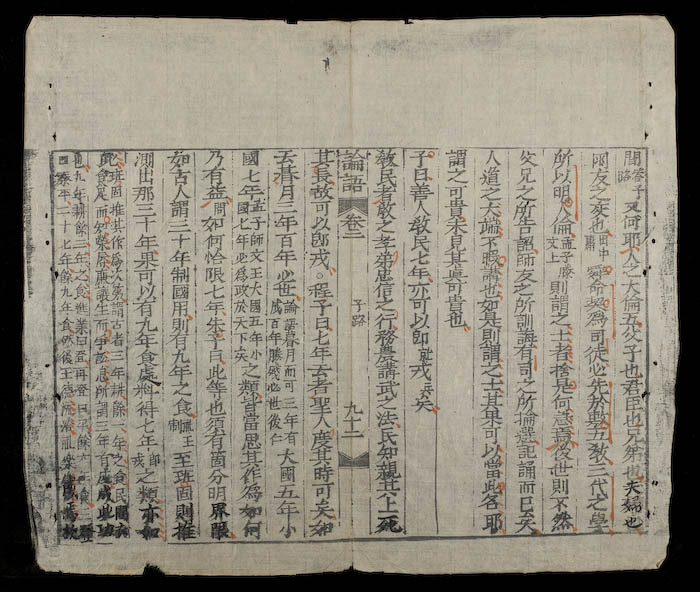 又何耶人之大倫五父子也君臣也兄弟也夫婦也
朋友之交也中庸舜命契爲司徒必先於敷五教三代之學
所以明人倫孟子滕文上則謂之士者捨是何焉後世則不然
父兄之所告詔師友之所訓誨有司之所掄選記誦而已矣
人道之大端不暇講也如是則謂之士其果可以當此名耶
謂之可貴未見其眞可貴也
子曰善人教民七年亦可以卽戎矣
教民者教之孝弟忠信之行務農講武之法民知親其上死
論語 卷三 子路 九十二
其長故可以卽戎○程子曰七年云者聖人度其時可矣如
云朞月三年百年必世論語朞月而可三年有成百年勝殘必世後仁大國五年小
國七年孟子師文王大國五年小國七年必爲政於天下矣之類皆當思其作爲如何
乃有益問如何恰限七年朱子曰此等也須有箇分明界限
如古人謂三十年制國用則有九年之食王制至班固則推
測出那三十年果可以有九年食處料得七年卽戎之類亦如
此班固推其作爲次第謂古者三年耕餘一年之食
食足而知榮辱廉讓生而爭訟息所謂三年有成此也
九年耕餘三年之食進業曰登再登曰平餘六年食
二十七年餘九年食然後王德流洽禮樂成焉